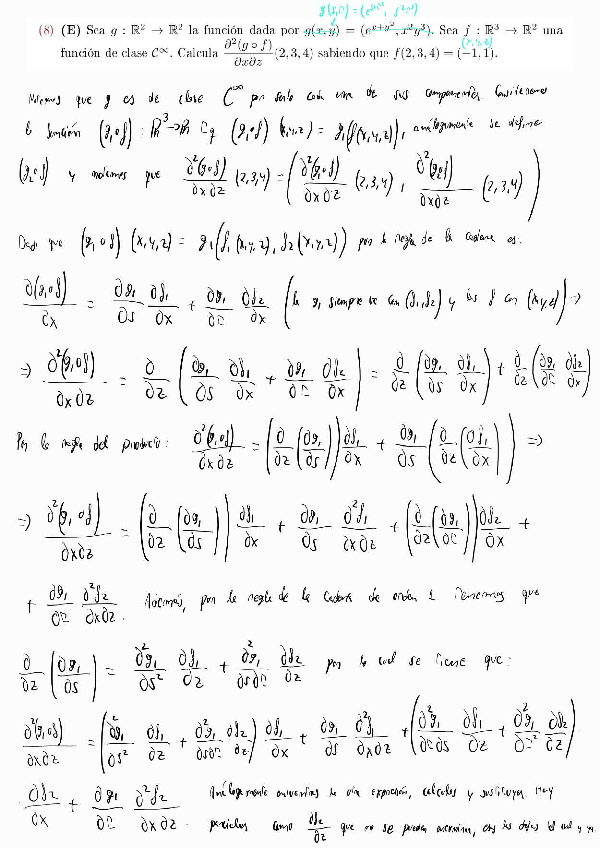 g(s,r) = (e^{s+r²}, s²r³)
(8) (E) Sea g : ℝ² → ℝ² la función dada por g(x,y) = (e^{x+y²}, x²y³). Sea f : ℝ³ → ℝ² una
(x,y,z)
función de clase C^∞. Calcula ∂²(g∘f)/∂x∂z (2,3,4) sabiendo que f(2,3,4) = (−1,1).
que g es de clase C^∞ por serlo cada una de sus componentes. Consideremos
la función (g₁∘f) : ℝ³→ℝ (g₁∘f)(x,y,z) = g₁(f(x,y,z)), análogamente se define
(g₂∘f) y notemos que ∂²(g∘f)/∂x∂z (2,3,4) = (∂²(g₁∘f)/∂x∂z (2,3,4), ∂²(g₂∘f)/∂x∂z (2,3,4))
Dado que (g₁∘f)(x,y,z) = g₁(f₁(x,y,z), f₂(x,y,z)) por la regla de la cadena es:
∂(g₁∘f)/∂x = ∂g₁/∂s ∂f₁/∂x + ∂g₁/∂r ∂f₂/∂x (la g₁ siempre va con (f₁,f₂) y las f con (x,y,z)) ⇒
⇒ ∂²(g₁∘f)/∂x∂z = ∂/∂z (∂g₁/∂s ∂f₁/∂x + ∂g₁/∂r ∂f₂/∂x) = ∂/∂z (∂g₁/∂s ∂f₁/∂x) + ∂/∂z (∂g₁/∂r ∂f₂/∂x)
Por la regla del producto: ∂²(g₁∘f)/∂x∂z = (∂/∂z (∂g₁/∂s)) ∂f₁/∂x + ∂g₁/∂s (∂/∂z (∂f₁/∂x)) ⇒
⇒ ∂²(g₁∘f)/∂x∂z = (∂/∂z (∂g₁/∂s)) ∂f₁/∂x + ∂g₁/∂s ∂²f₁/∂x∂z + (∂/∂z (∂g₁/∂r)) ∂f₂/∂x +
+ ∂g₁/∂r ∂²f₂/∂x∂z. Además, por la regla de la cadena de orden 1 tenemos que
∂/∂z (∂g₁/∂s) = ∂²g₁/∂s² ∂f₁/∂z + ∂²g₁/∂s∂r ∂f₂/∂z por lo cual se tiene que:
∂²(g₁∘f)/∂x∂z = (∂²g₁/∂s² ∂f₁/∂z + ∂²g₁/∂s∂r ∂f₂/∂z) ∂f₁/∂x + ∂g₁/∂s ∂²f₁/∂x∂z + (∂²g₁/∂r∂s ∂f₁/∂z + ∂²g₁/∂r² ∂f₂/∂z) ·
· ∂f₂/∂x + ∂g₁/∂r ∂²f₂/∂x∂z. Análogamente encuentras la otra expresión, calculas y sustituyes. Hay
parciales como ∂f₂/∂z que no se pueden encontrar, las dejas tal cual y ya.